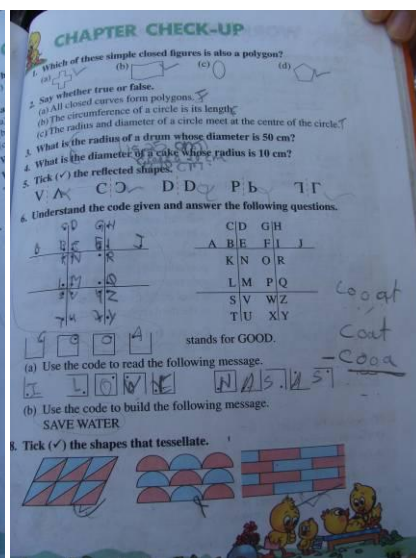 CHAPTER CHECK-UP
1. Which of these simple closed figures is also a polygon?
(a) (b) (c) (d)
2. Say whether true or false.
(a) All closed curves form polygons. F
(b) The circumference of a circle is its length.
(c) The radius and diameter of a circle meet at the centre of the circle. T
3. What is the radius of a drum whose diameter is 50 cm?
4. What is the diameter of a cake whose radius is 10 cm?
5. Tick (✓) the reflected shapes.
6. Understand the code given and answer the following questions.
C D G H
A B E F I J
K N O R
L M P Q
S V W Z
T U X Y
stands for GOOD.
(a) Use the code to read the following message.
(b) Use the code to build the following message.
SAVE WATER
8. Tick (✓) the shapes that tessellate.